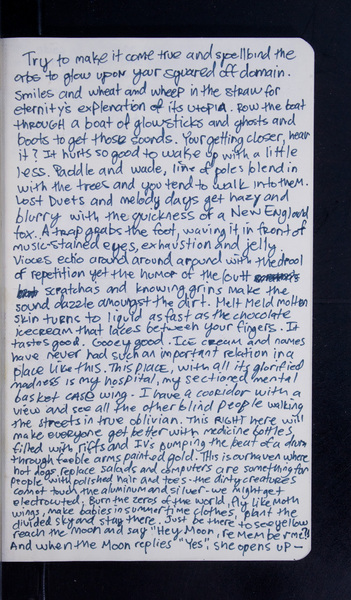 Try to make it come true and spellbind the
orbs to glow upon your squared off domain.
Smiles and wheat and wheep in the straw for
eternity's explenation of its utopia. Row the boat
through a boat of glowsticks and ghosts and
boots to get those soords. Your getting closer, hear
it? It hurts so good to wake up with a little
less. Paddle and wade, line of poles blend in
with the trees and you tend to walk into them.
Lost Duets and melody days get hazy and
blurry with the quickness of a New England
fox. A trap grabs the foot, waving it in front of
music-stained eyes, exhaustion and jelly.
Vioces echo around around around with the drool
of repetition yet the humor of the butt
scratchas and knowing grins make the
sound dazzle amoungst the dirt. Melt Meld molten
skin turns to liquid as fast as the chocolate
icecream that laces between your fingers. It
tastes good. Gooey good. Ice cream and names
have never had such an important relation in a
place like this. This place, with all its glorified
madness is my hospital, my sectioned mental
basket case wing. I have a cooridor with a
view and see all the other blind people walking
the streets in true oblivian. This RIGHT here will
make everyone get better with medicine bottles,
filled with riffs and IV's pumping the beat of a drum
through feeble arms painted gold. This is our haven where
hot dogs replace salads and computers are something for
people with polished hair and toes - the dirty creatures
cannot touch the aluminum and silver - we might get
electrocuted. Burn the zeros of the world, fly like moth
wings, make babies in summertime clothes, plant the
divided sky and stay there. Just be there to see yellow
reach the moon and say "Hey Moon, remember me?"
And when the Moon replies "Yes", she opens up -